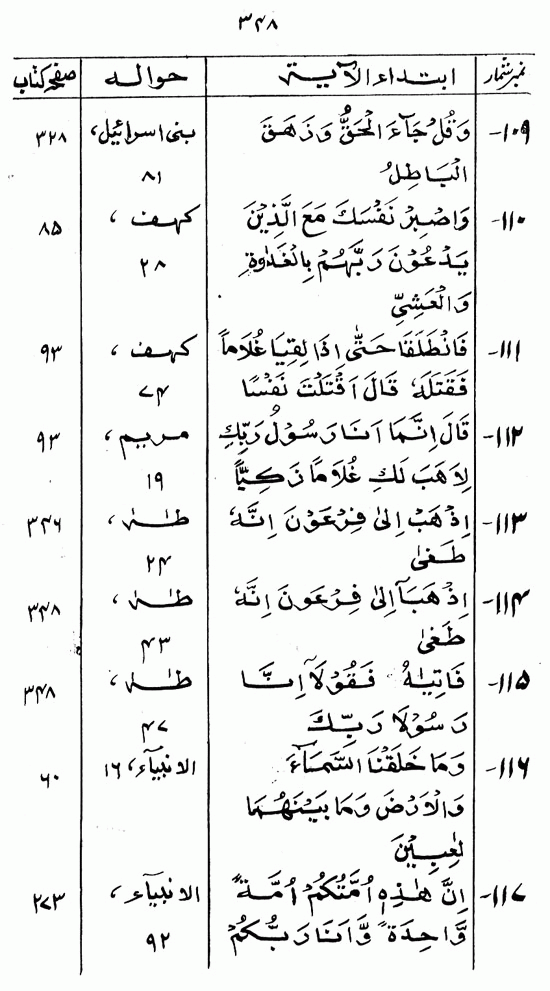 ۳۴۸
نمبر شمار ابتداء الآیۃ حوالہ صفحہ کتاب
۱۰۹- وَقُلْ جَآءَ الْحَقُّ وَزَهَقَ بنی اسرائیل، ۳۲۸
الْبَاطِلُ ۸۱
۱۱۰- وَاصْبِرْ نَفْسَكَ مَعَ الَّذِيْنَ کہف ، ۸۵
يَدْعُوْنَ رَبَّهُمْ بِالْغَدٰوةِ ۲۸
وَالْعَشِيِّ
۱۱۱- فَانْطَلَقَا حَتّٰى اِذَا لَقِيَا غُلَامًا کہف ، ۹۳
فَقَتَلَهٗ قَالَ اَقَتَلْتَ نَفْسًا ۷۴
۱۱۲- قَالَ اِنَّمَا اَنَا رَسُوْلُ رَبِّكِ مریم ، ۹۳
لِاَهَبَ لَكِ غُلَامًا زَكِيًّا ۱۹
۱۱۳- اِذْهَبْ اِلٰى فِرْعَوْنَ اِنَّهٗ طٰہٰ ، ۳۴۶
طَغٰى ۲۴
۱۱۴- اِذْهَبَآ اِلٰى فِرْعَوْنَ اِنَّهٗ طٰہٰ ، ۳۴۸
طَغٰى ۴۳
۱۱۵- فَاْتِيٰهُ فَقُوْلَآ اِنَّا طٰہٰ ، ۳۴۸
رَسُوْلَا رَبِّكَ ۴۷
۱۱۶- وَمَا خَلَقْنَا السَّمَآءَ الانبیآء، ۱۶ ۶۰
وَالْاَرْضَ وَمَا بَيْنَهُمَا
لٰعِبِيْنَ
۱۱۷- اِنَّ هٰذِهٖ اُمَّتُكُمْ اُمَّةً الانبیآء ، ۲۷۳
وَّاحِدَةً وَّاَنَا رَبُّكُمْ ۹۲